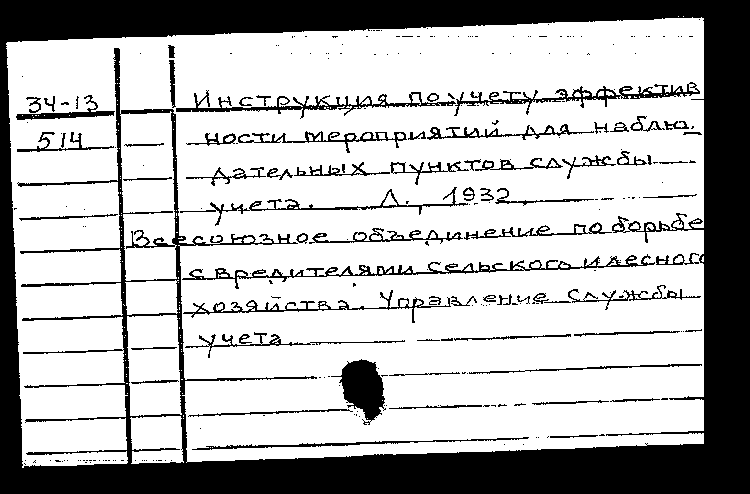 34-13 Инструкция по учету эффектив
514 ности мероприятий для наблю-
дательных пунктов службы
учета. Л., 1932.
Всесоюзное объединение по борьбе
с вредителями сельского и лесного
хозяйства. Управление службы
учета.